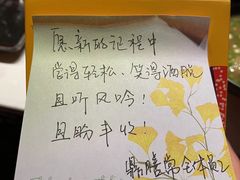 愿新的记程中
尝得轻松、笑得洒脱
且听风吟！
且盼丰收！
膳常全体员